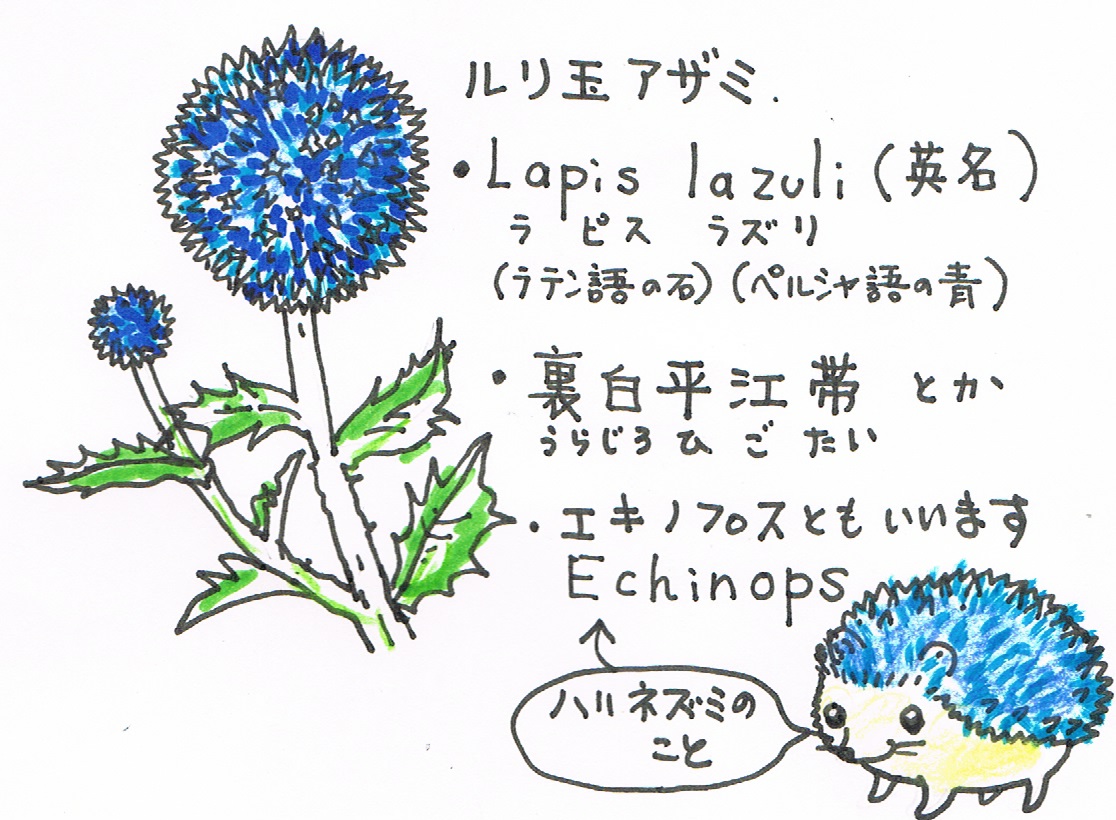 ルリ玉アザミ.
・Lapis lazuli(英名)
ラピス ラズリ
(ラテン語の石)(ペルシャ語の青)
・裏白平江帯 とか
うらじろ ひ ご たい
・エキノプロスともいいます
Echinops
ハリネズミの
こと